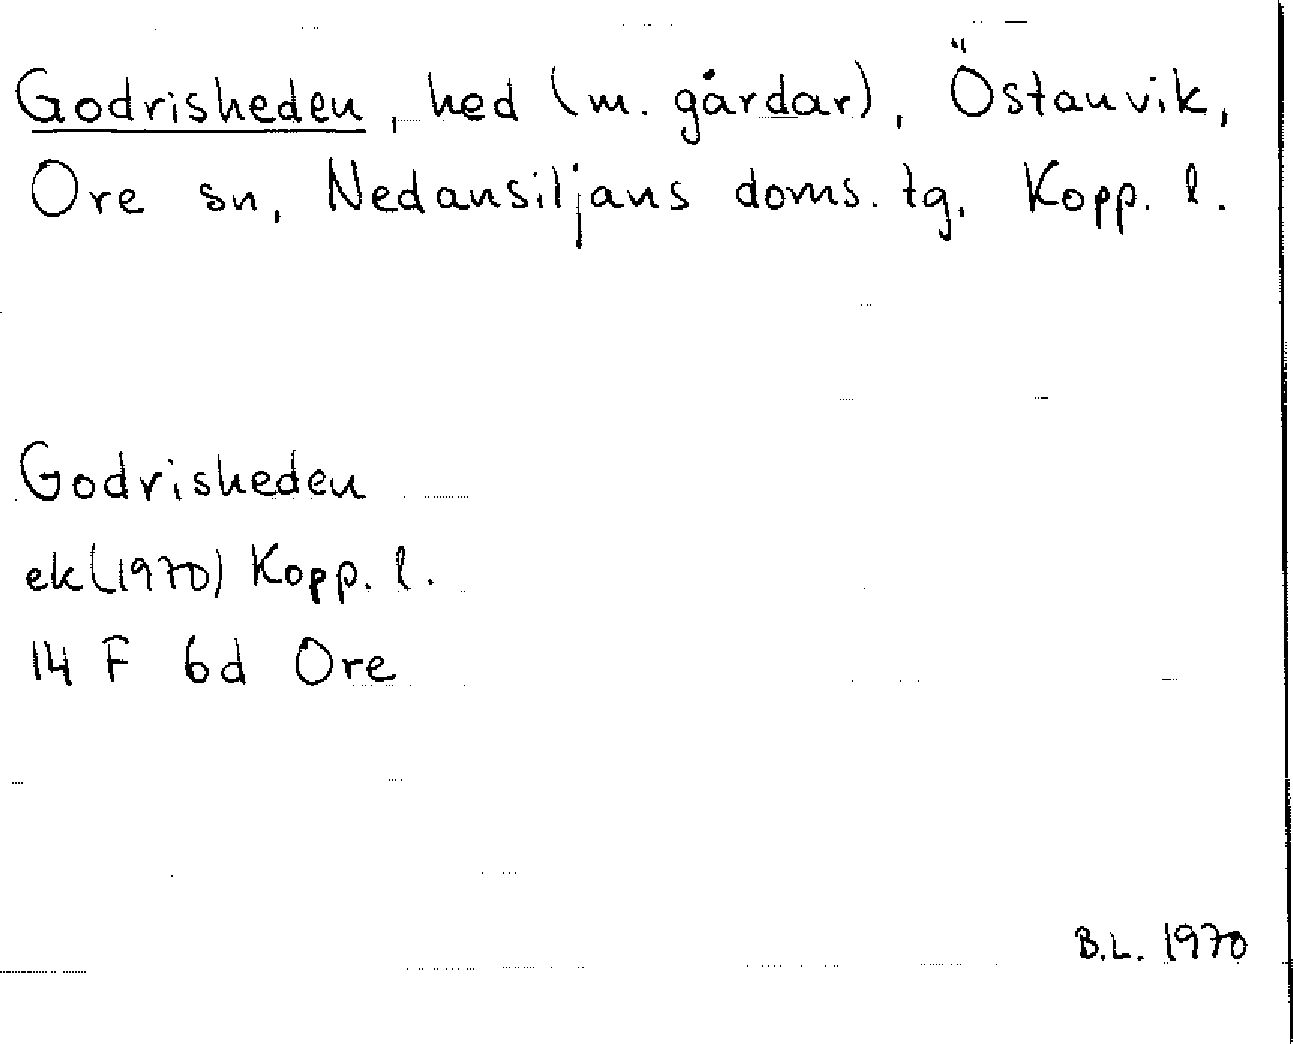 Godrisheden, hed (m. gårdar), Östanvik,
Ore sn, Nedansiljans doms. tg, Kopp. l.
Godrisheden
ek (1970) Kopp. l.
14 F 6d Ore
B.L. 1970